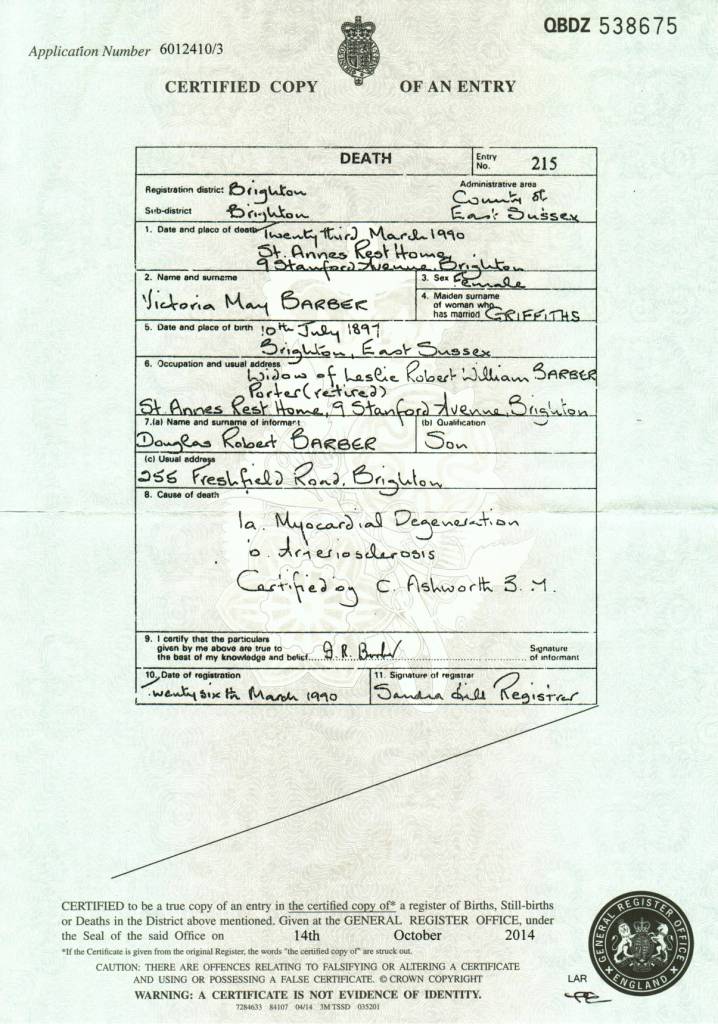 QBDZ 538675
Application Number 6012410/3
CERTIFIED COPY OF AN ENTRY
DEATH
Entry No. 215
Registration district Brighton
Administrative area
Sub-district Brighton
County of East Sussex
1. Date and place of death Twenty third March 1990
St. Annes Rest Home
9 Stanford Avenue, Brighton
2. Name and surname
3. Sex Female
Victoria May BARBER
4. Maiden surname of woman who has married GRIFFITHS
5. Date and place of birth 10th July 1897
Brighton, East Sussex
6. Occupation and usual address
Widow of Leslie Robert William BARBER
Porter (retired)
St Annes Rest Home, 9 Stanford Avenue, Brighton
7.(a) Name and surname of informant
(b) Qualification
Douglas Robert BARBER
Son
(c) Usual address
255 Freshfield Road, Brighton
8. Cause of death
1a. Myocardial Degeneration
b. Arteriosclerosis
Certified by C. Ashworth B.M.
9. I certify that the particulars
given by me above are true to
the best of my knowledge and belief D.R. Barber
Signature
of informant
10. Date of registration
11. Signature of registrar
Twenty sixth March 1990
Sandra Registrar
CERTIFIED to be a true copy of an entry in the certified copy of* a register of Births, Still-births
or Deaths in the District above mentioned. Given at the GENERAL REGISTER OFFICE, under
the Seal of the said Office on 14th October 2014
*If the Certificate is given from the original Register, the words "the certified copy of" are struck out.
CAUTION: THERE ARE OFFENCES RELATING TO FALSIFYING OR ALTERING A CERTIFICATE
AND USING OR POSSESSING A FALSE CERTIFICATE. © CROWN COPYRIGHT
WARNING: A CERTIFICATE IS NOT EVIDENCE OF IDENTITY.
7284633 84107 04/14 3M TSSD 035201
GENERAL REGISTER OFFICE
ENGLAND
LAR